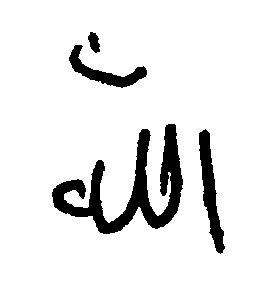 ن
الله